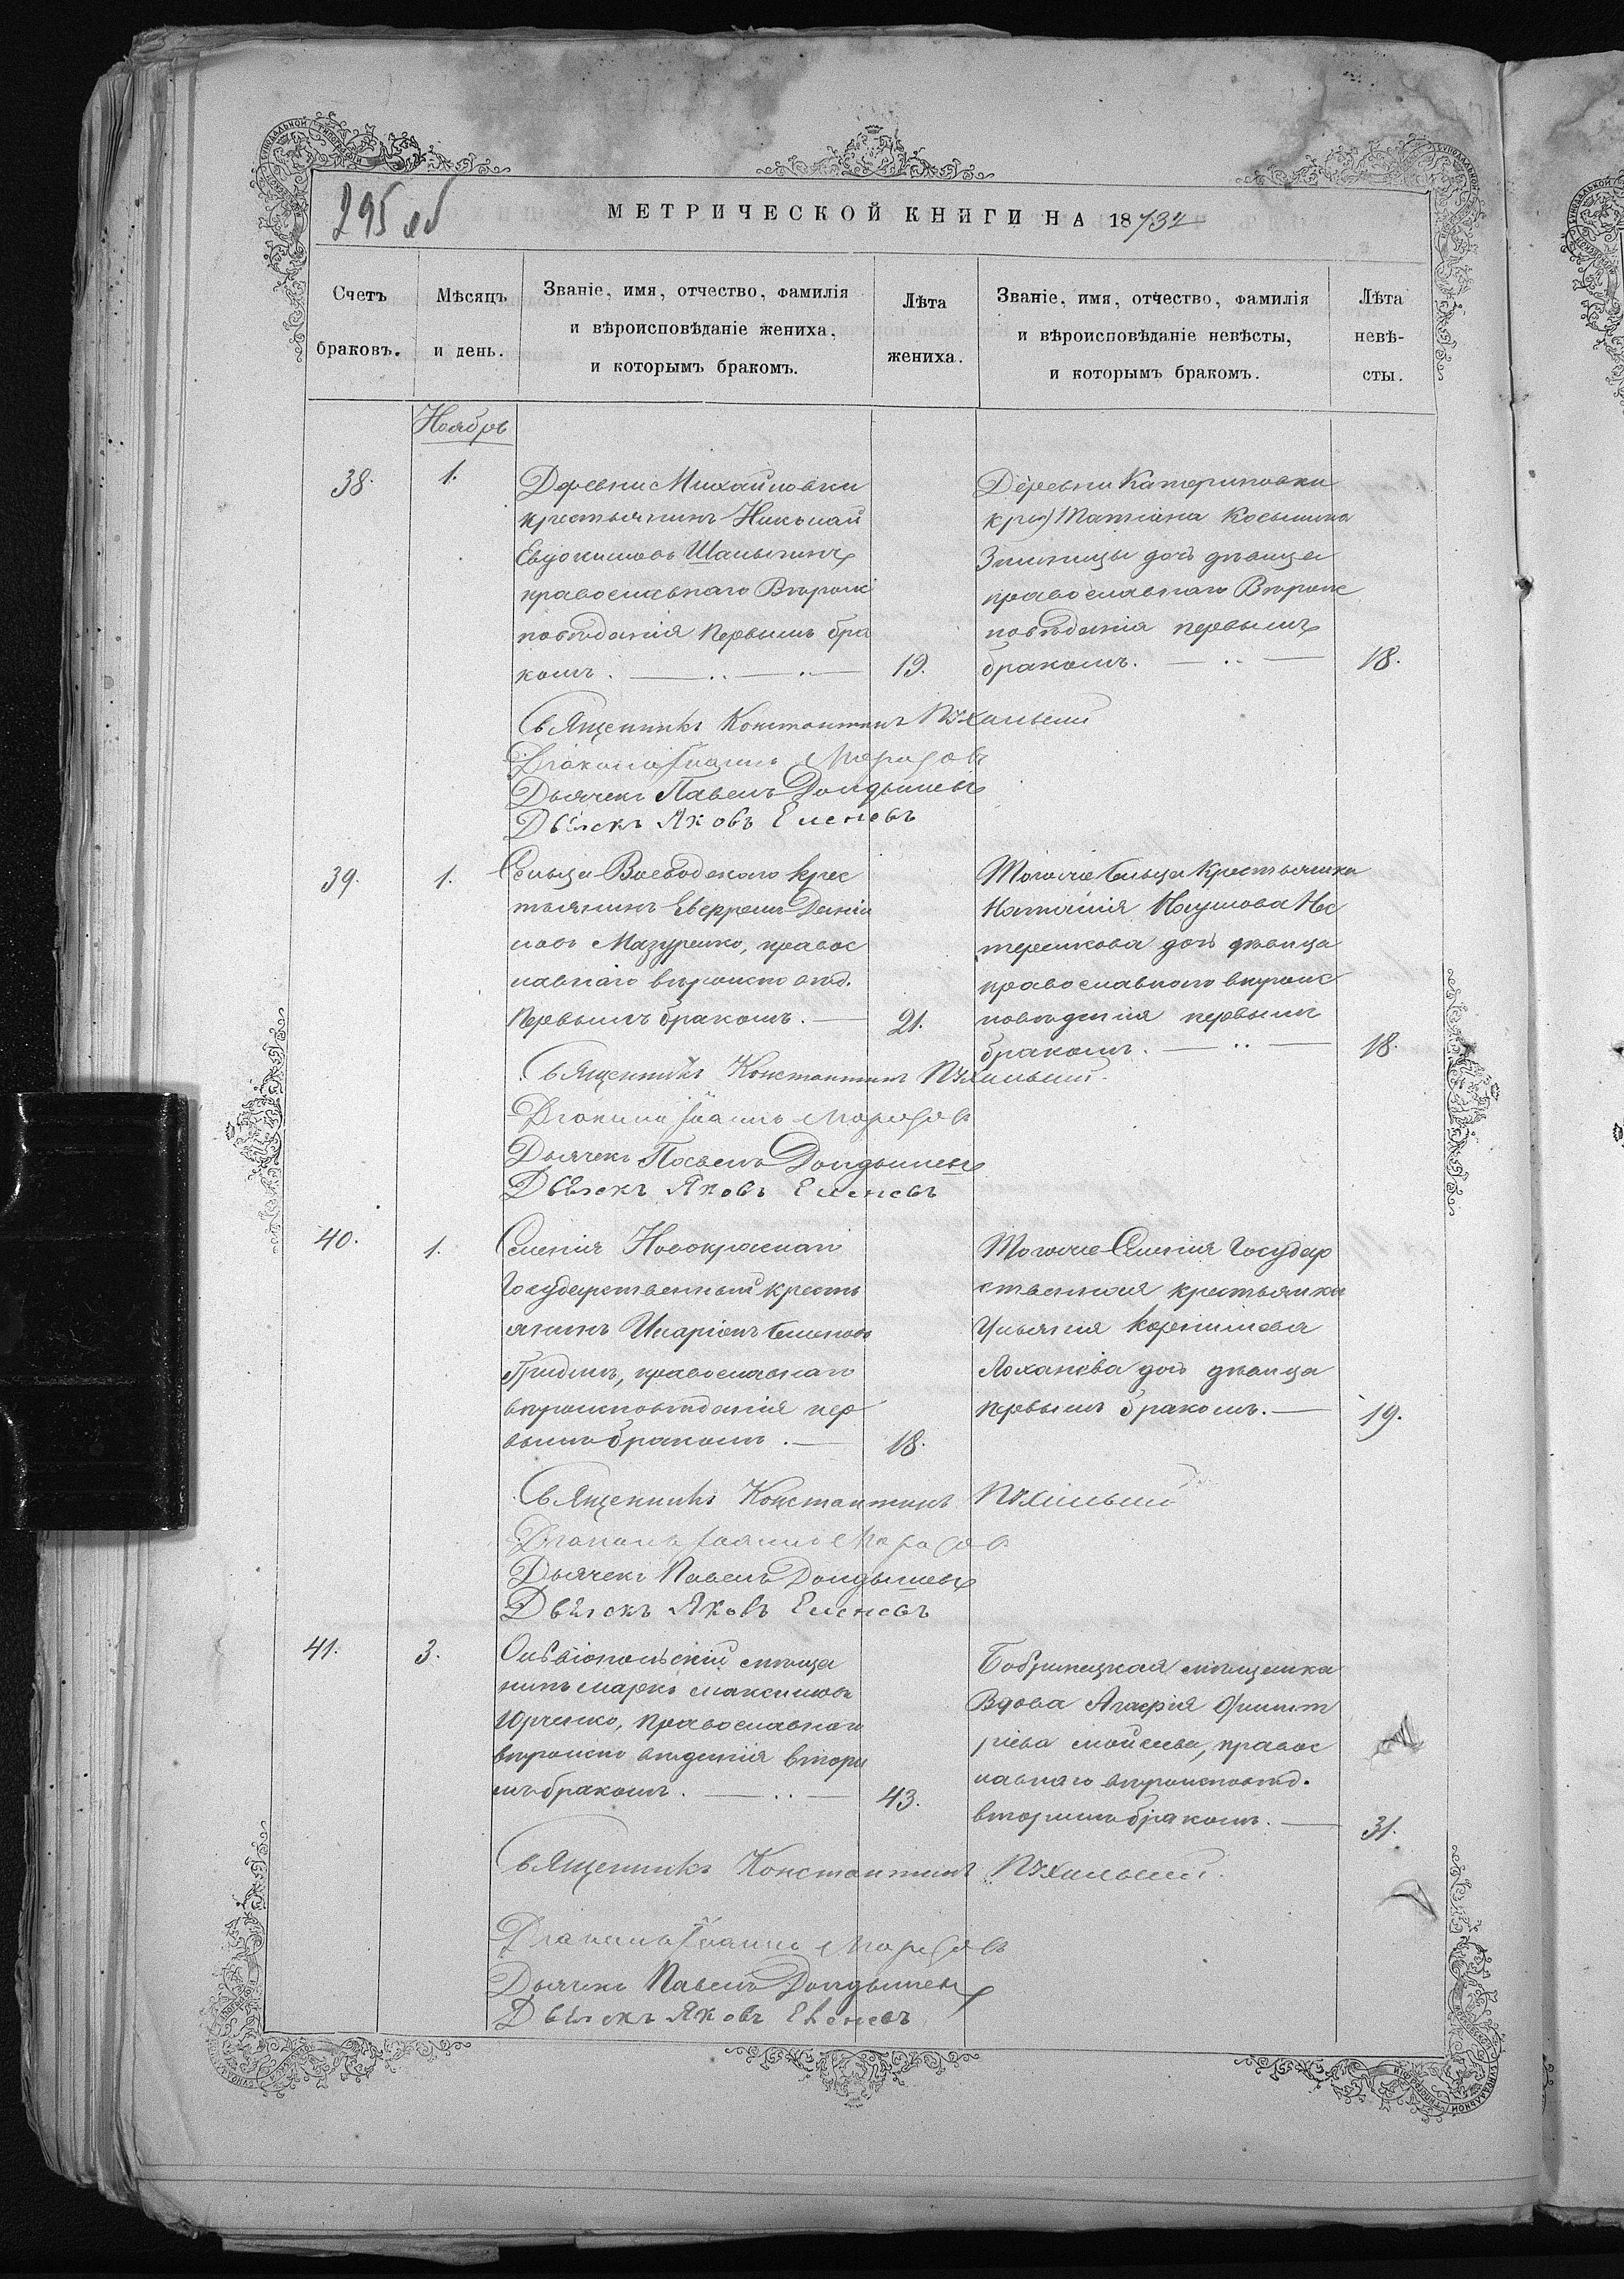 295 об
МЕТРИЧЕСКОЙ КНИГИ НА 1873
Счетъ браковъ.
Мѣсяцъ и день.
Званіе, имя, отчество, фамилія
и вѣроисповѣданіе жениха,
и которымъ бракомъ.
Лѣта жениха.
Званіе, имя, отчество, фамилія
и вѣроисповѣданіе невѣсты,
и которымъ бракомъ.
Лѣта невѣ-
сты.
Ноябрь
38.
1.
Деревни Михайловки
крестьянинъ Николай
Евдокимовъ Шалыгинъ
православнаго Вѣроис
повѣданія первымъ бра
комъ.
19.
Деревни Катериновки
крес) Татіана Косьмина
дочь дѣвица
православнаго Вѣроис
повѣданія первымъ
бракомъ.
18.
Священникъ Константинъ
Діаконъ Іоаннъ
Дьячекъ Павелъ
Яковъ
39.
1.
Сельца Воеводскаго крес
тьянинъ Евфремъ Дани
ловъ Мазуренко, правос
лавнаго вѣроисповѣд.
Первымъ бракомъ.
21.
Тогоже Сельца Крестьянка
Наталія Наумова Не
терешкова дочь дѣвица
православнаго вѣроис
повѣденія первымъ
бракомъ.
18.
Священникъ Константинъ
Діаконъ Іоаннъ
Дьячекъ Павелъ
Яковъ
40.
1.
Селенія Новокраснаго
Государственный кресть
янинъ Иларіонъ Семеновъ
Гридинъ, православнаго
вѣроисповѣданія пер
вымъ бракомъ.
18.
Тогоже Селенія Государ
ственная крестьянка
Ульянія Корнилова
Лоханева дочь дѣвица
первымъ бракомъ.
19.
Священникъ Константинъ
Діаконъ Іоаннъ
Дьячекъ Павелъ
Яковъ
41.
3.
Ольвіопольскій мѣща
нинъ Марко Максимовъ
Юрченко, Православнаго
вѣроисповѣденія вторы
мъ бракомъ.
43.
Бобринецкая мѣщанка
Вдова Димит
ріева Мойсеева, правос
лавнаго вѣроисповѣд.
вторымъ бракомъ.
31.
Священникъ Константинъ
Діаконъ Іоаннъ
Дьячекъ Павелъ
Яковъ